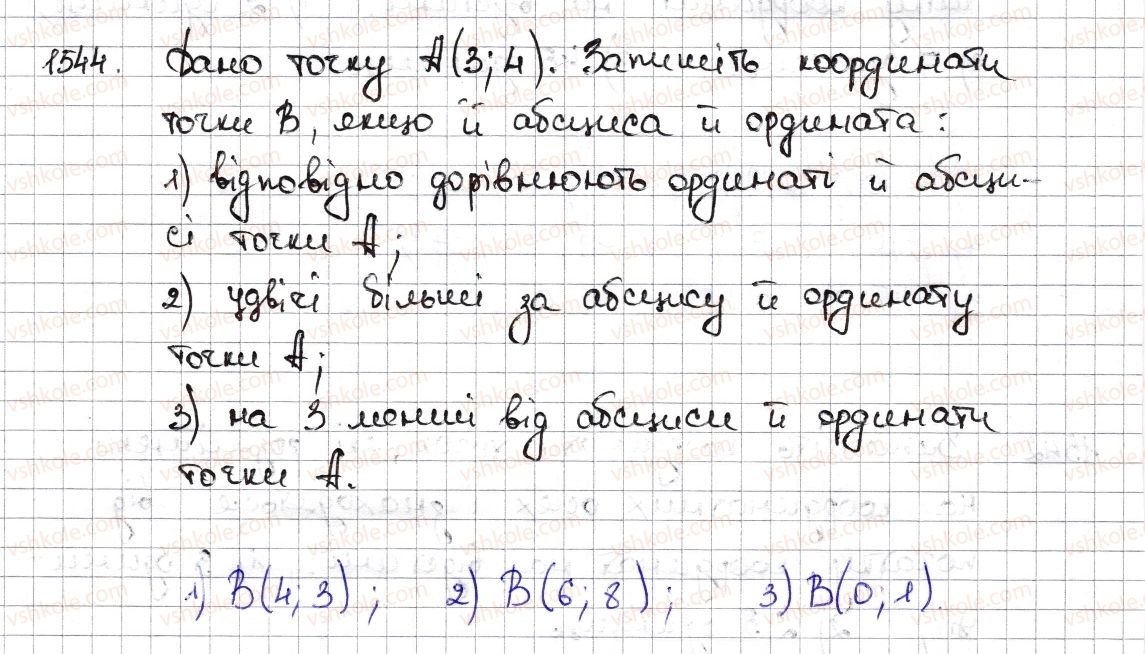 1544. Дано точку А(3;4). Запишіть координати
точки В, якщо її абсциса й ордината:
1) відповідно дорівнюють ординаті й абсци-
сі точки А;
2) удвічі більші за абсцису й ординату
точки А;
3) на 3 менші від абсциси й ординати
точки А.
1) В(4;3); 2) В(6;8); 3) В(0;1).